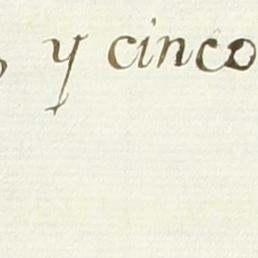 y cinco